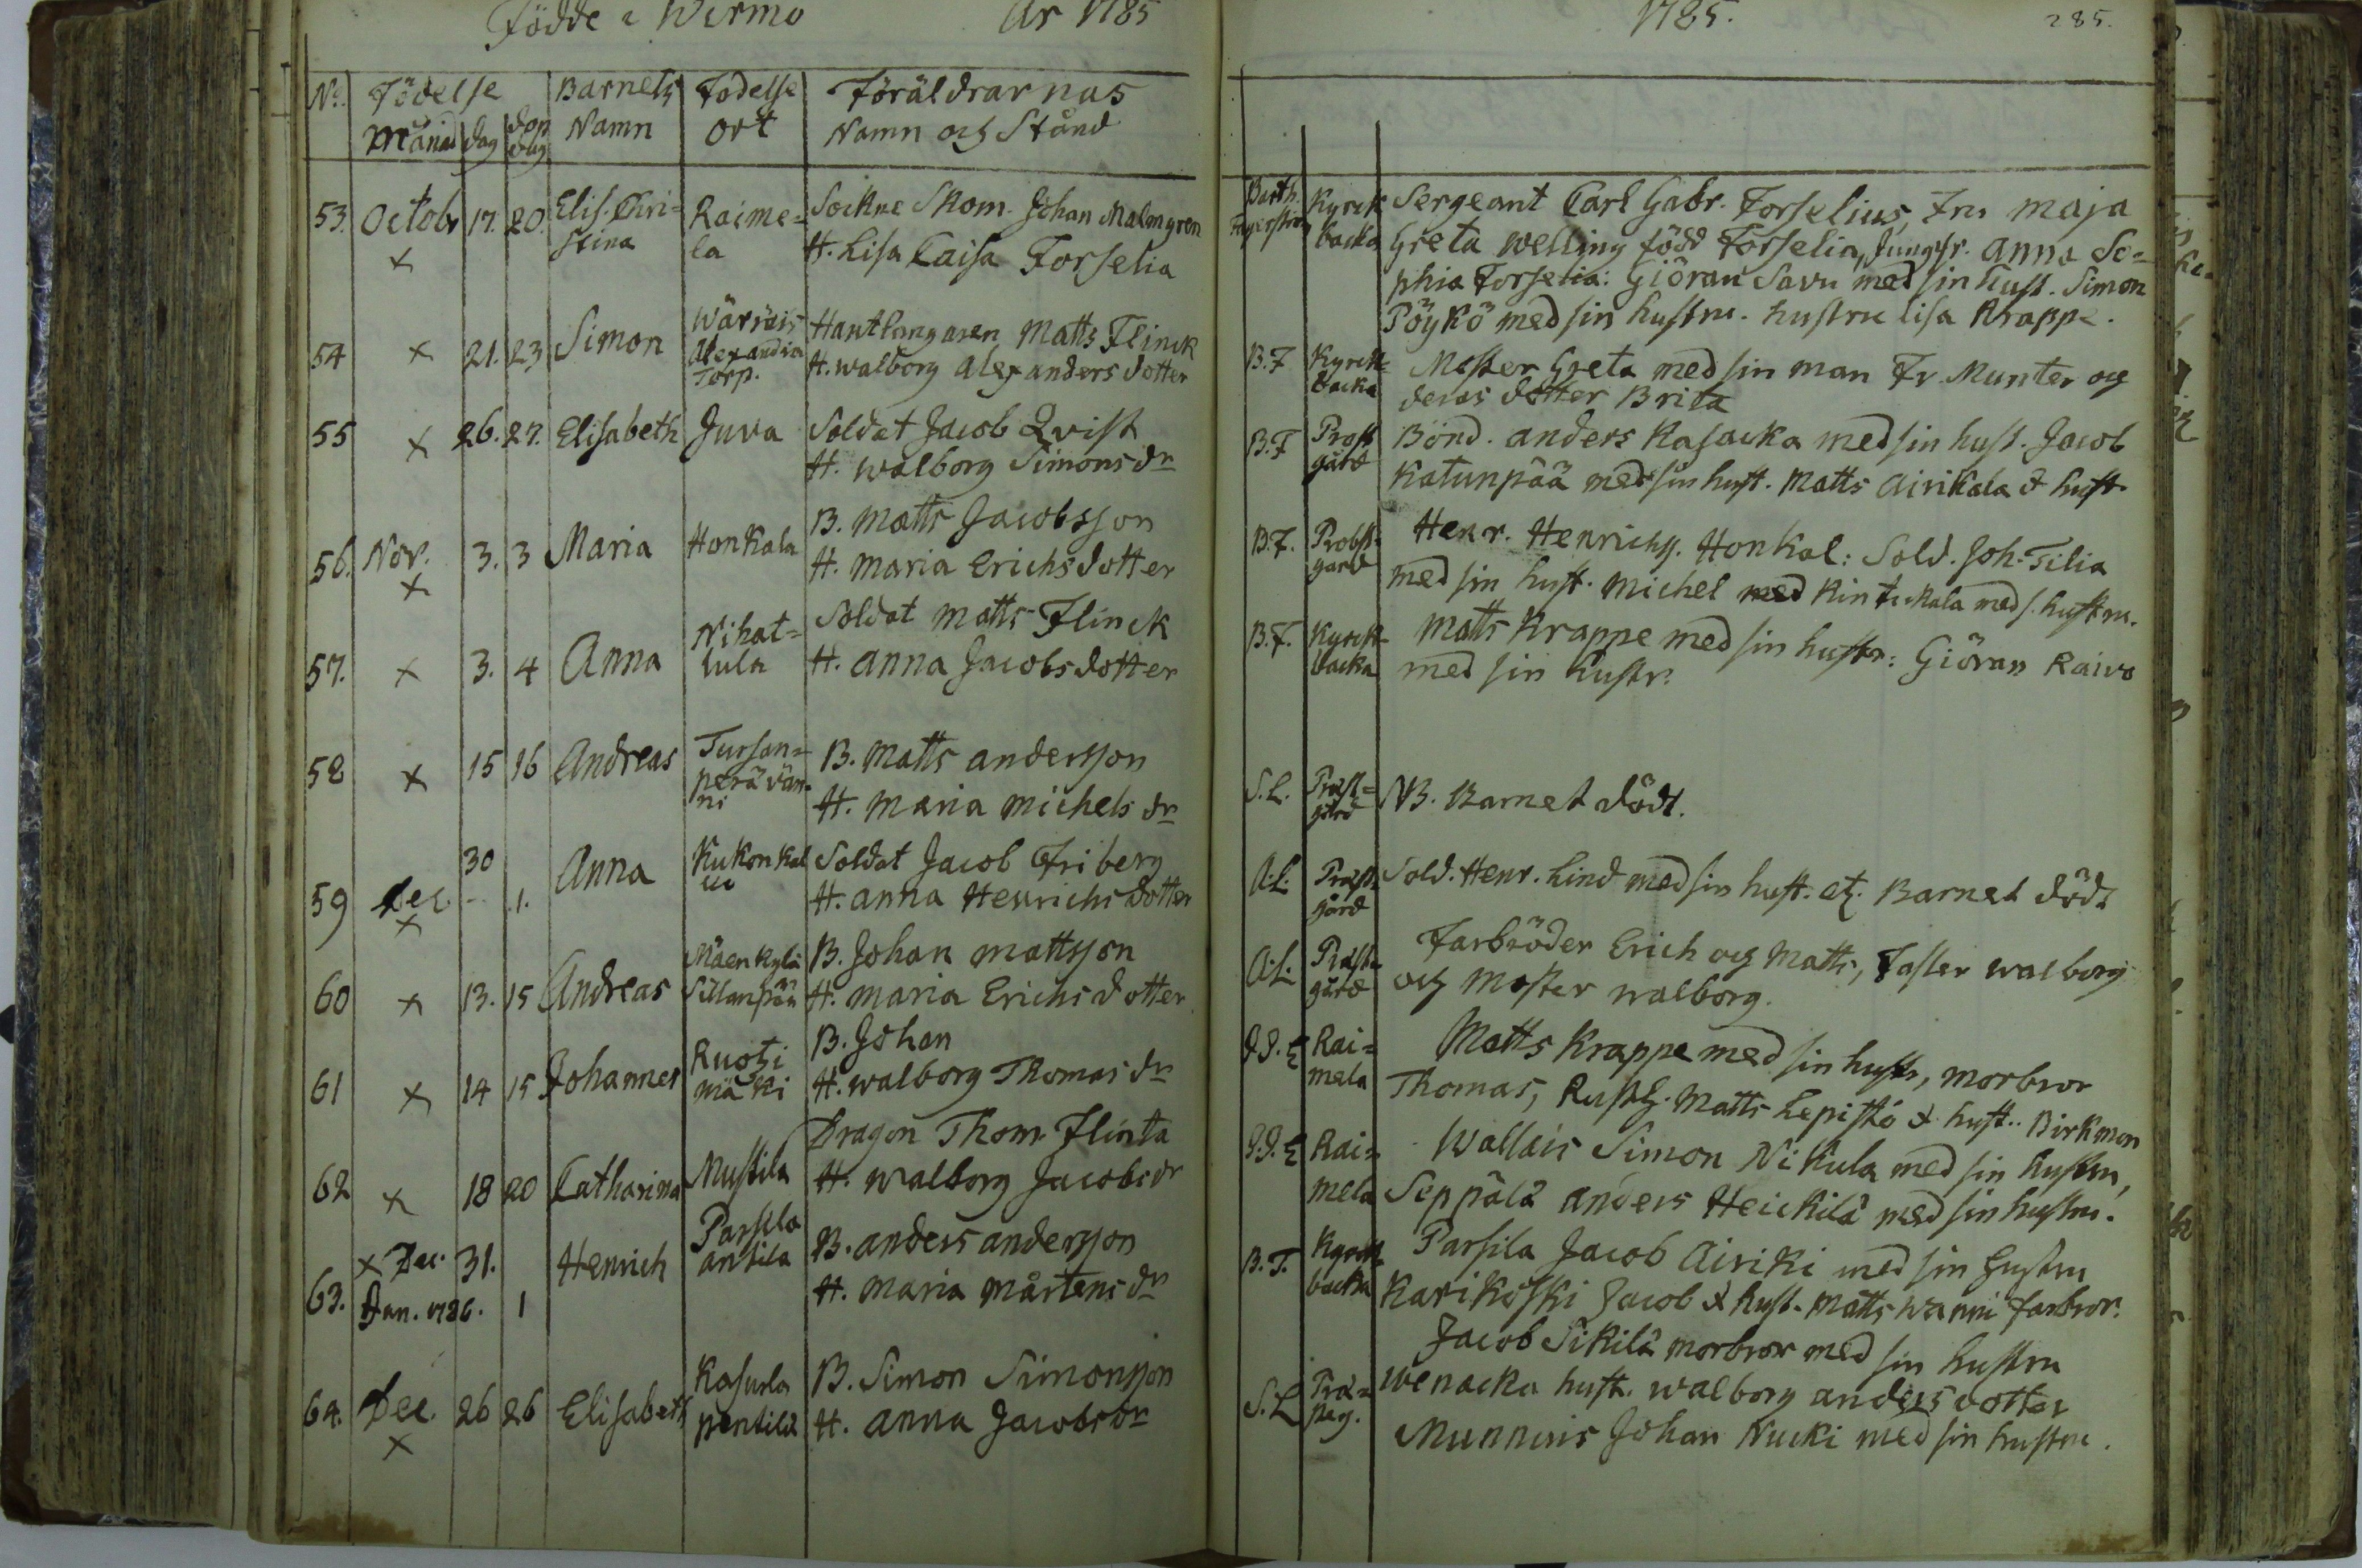 Födde i Wirmo År 1785
No. Födelse Barnets Födelse Föräldrarnas
Månad dag dop dag Namn ort Namn och Stånd
53. Octobr 17. 20. Elis. Chri= Raime= Sockne Skom. Johan Malmgren
x stina la H. Lisa Caisa Forselia
Wäräis
54 x 21. 23 Simon Alexandria Hantlangaren Matts Flinck
Torp. H. Walborg Alexanders dotter
55 x 26. 27. Elisabeth Juva Soldat Jacob Qvist
H. Walborg Simons dr
B. Matts Jacobsson
56. Nov. 3. 3 Maria Honkala H. Maria Erichsdotter
x
Nihat= Soldat Matts Flinck
57. x 3. 4 Anna lula H. Anna Jacobsdotter
58 x 15 16 Andreas Tursan= B. Matts andersson
perävän=
ni H. Maria Michels dr
30 Anna Kukonkal Soldat Jacob Friberg
59 Dec - 1. H. Anna Henrichsdotter
x
Mäenkylä B. Johan Mattsson
60 x 13. 15 Andreas Sillanpää H. Maria Erichsdotter
61 x 14 15 Johannes Ruotzi B. Johan
mäki H. Walborg Thomas dr
Dragon Thom. Flinta
62 x 18 20 Catharina Mustila H. Walborg Jacobs dr
x Dec. 31. Henrich Parsila B. anders andersson
63. Jan. 1786. 1 antila H. Maria Mårtens dr
64. Dec. 26 26 Elisabeth Kasurla B. Simon Simonsson
x pentilä H. Anna Jacobs dr
1785. 285.
Barth. Kyrck Sergeant Carl Gabr. Forselius, Fru Maja
backa Greta Welling född Forselia, Jungfr. Anna So=
phia Forselia: Giöran Savu med sin hust. Simon
Pöykö med sin hustru. hustru Lisa Krappe.
B.F Kyrck= Moster Greta med sin man Fr. Munter och
backa deras dotter Brita
B.F Prost Bönd. anders Kasacka med sin hust. Jacob
gård Katunpää med sin hust. Matts Airikala & hust.
B.F. Probst= Henr. Henrichs. Honkal: Sold. Joh. Tilia
gård med sin hust. Michel med Rintickala med s. hustru.
B.F. Kyrck= Matts Krappe med sin hustr: Giöran Raivo
backa med sin hustr.
S.L. Präst= NB. Barnet dödt.
gård
A.L. Präst= Sold. Henr. Lind med sin hust. etz. Barnet dödt
gård
A.L. Präst= Farbröder Erich och Matts, Faster Walborg
gård och Moster Walborg.
Rai= Matts Krappe med sin hustr, morbror
mela Thomas, Rusth. Matts Lepistö & hust.. Birkman
Rai= Wallais Simon Nikula med sin hustru,
mela Seppälä anders Heickilä med sin hustru.
B.F. Kyrck= Parsila Jacob Airiki med sin hustru
backa Karikoski Jacob & hust. Matts Wanni farbror.
Jacob Sikilä morbror med sin hustru
S.L Wenacka hust. Walborg andersdotter
Munnuis Johan Nucki med sin hustru.